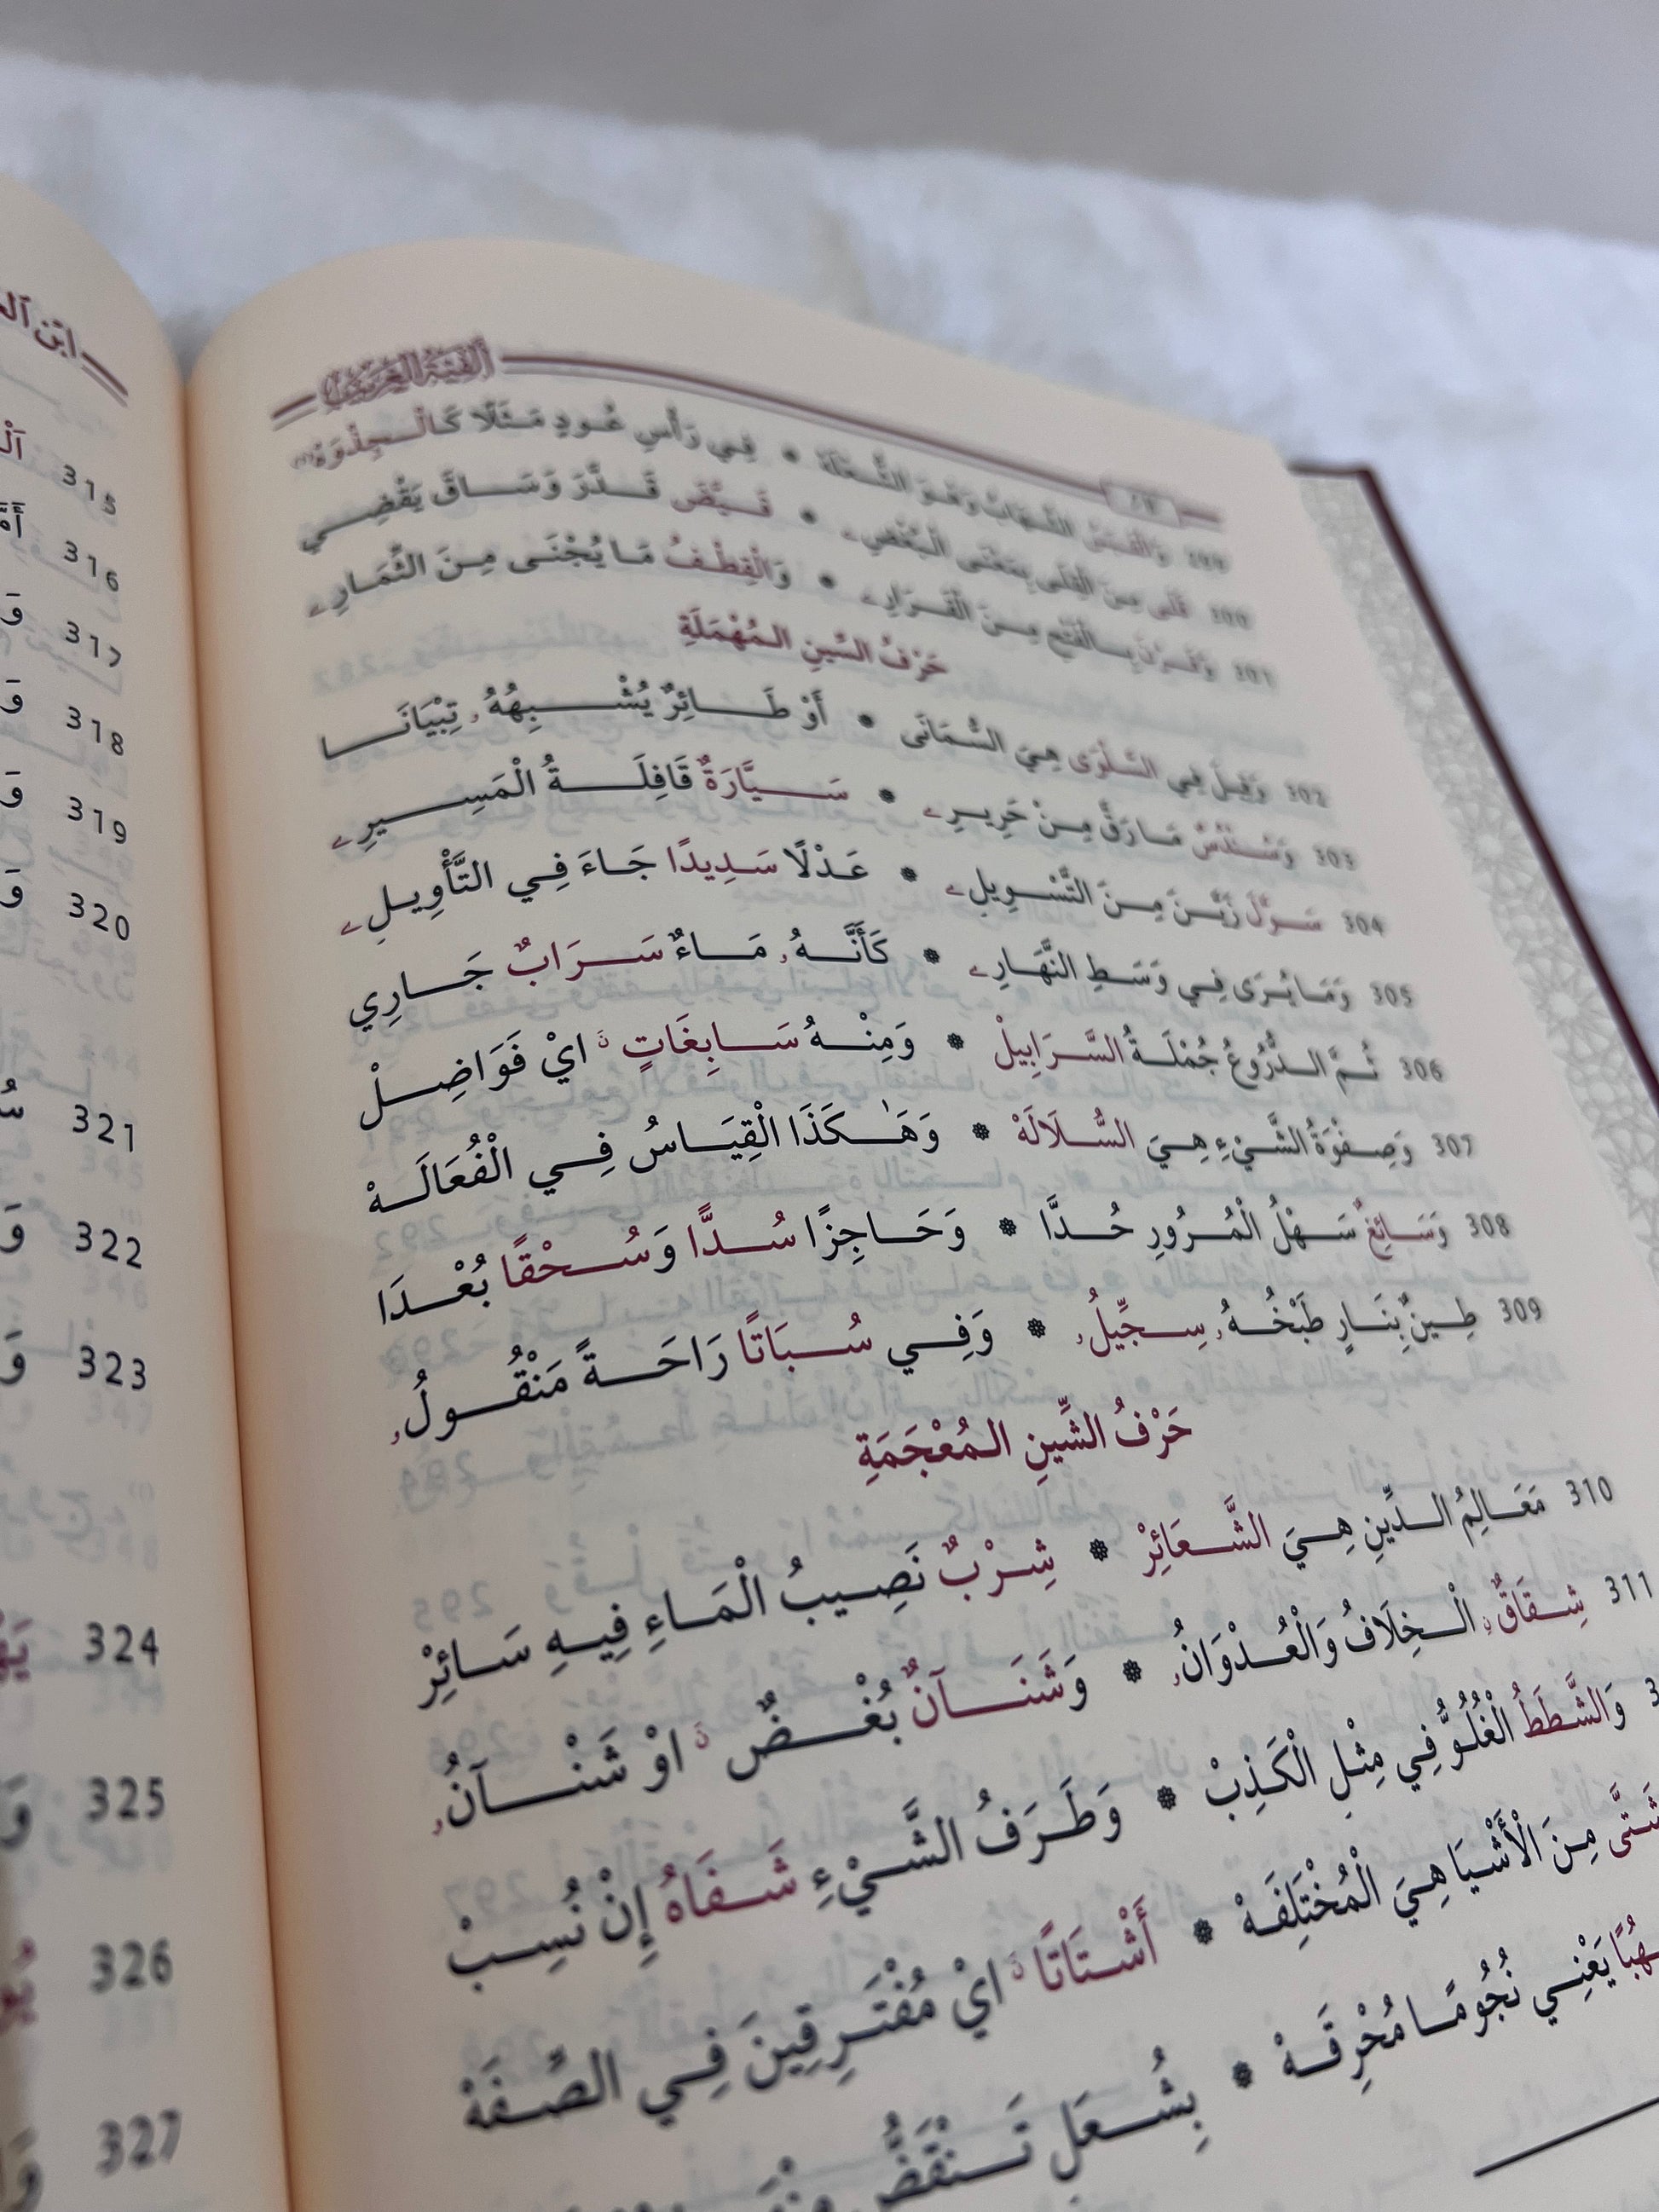 ألفية الغريب
299 وَالْقَبَسُ الشِّهَابُ وَهْوَ الشُّعْلَةْ * فِي رَأْسِ عُودٍ مَثَلًا كَالْجِذْوَةْ
300 قَلَى مِنَ الْقِلَى بِمَعْنَى الْبُغْضِ * قَيَّضَ قَدَّرَ وَسَاقَ يَقْضِي
301 وَقَرْنَ بِالْفَتْحِ مِنَ الْقَرَارِ * وَالْقِطْفُ مَا يُجْنَى مِنَ الثِّمَارِ
حَرْفُ السِّينِ الْمُهْمَلَةِ
302 وَقِيلَ فِي السَّلْوَى هِيَ السُّمَانَى * أَوْ طَائِرٌ يُشْبِهُهُ تِبْيَانَا
303 وَسُنْدُسٌ مَا رَقَّ مِنْ حَرِيرِ * سَيَّارَةٌ قَافِلَةُ الْمَسِيرِ
304 سَوَّلَ زَيَّنَ مِنَ التَّسْوِيلِ * عَدْلًا سَدِيدًا جَاءَ فِي التَّأْوِيلِ
305 وَمَا يُرَى فِي وَسَطِ النَّهَارِ * كَأَنَّهُ مَاءٌ سَرَابٌ جَارِي
306 ثُمَّ الدُّرُوعُ جُمْلَةُ السَّرَابِيلْ * وَمِنْهُ سَابِغَاتٍ ايْ فَوَاضِلْ
307 وَصِفْوَةُ الشَّيْءِ هِيَ السُّلَالَهْ * وَهَٰكَذَا الْقِيَاسُ فِي الْفُعَالَهْ
308 وَسَائِغٌ سَهْلُ الْمُرُورِ حُدَّا * وَحَاجِزًا سُدًّا وَسُحْقًا بُعْدَا
309 طِينٌ بِنَارٍ طَبْخُهُ سِجِّيلُ * وَفِي سُبَاتًا رَاحَةً مَنْقُولُ
حَرْفُ الشِّينِ الْمُعْجَمَةِ
310 مَعَالِمُ الدِّينِ هِيَ الشَّعَائِرْ * شِرْبٌ نَصِيبُ الْمَاءِ فِيهِ سَائِرْ
311 شِقَاقٌ الْخِلَافُ وَالْعُدْوَانُ * وَشَنَآنٌ بُغْضٌ اوْ شَنْآنُ
وَالشَّطَطُ الْغُلُوُّ فِي مِثْلِ الْكَذِبْ * وَطَرَفُ الشَّيْءِ شَفَاهُ إِنْ نُسِبْ
شَتَّى مِنَ الْأَشْيَا هِيَ الْمُخْتَلِفَهْ * أَشْتَاتًا ايْ مُفْتَرِقِينَ فِي الصِّفَهْ
يَعْنِي نُجُومًا مُحْرِقَهْ * بِشُعَلٍ تَنْقَضُّ
315
316
317
318
319
320
321
322
323
324
325
326
327